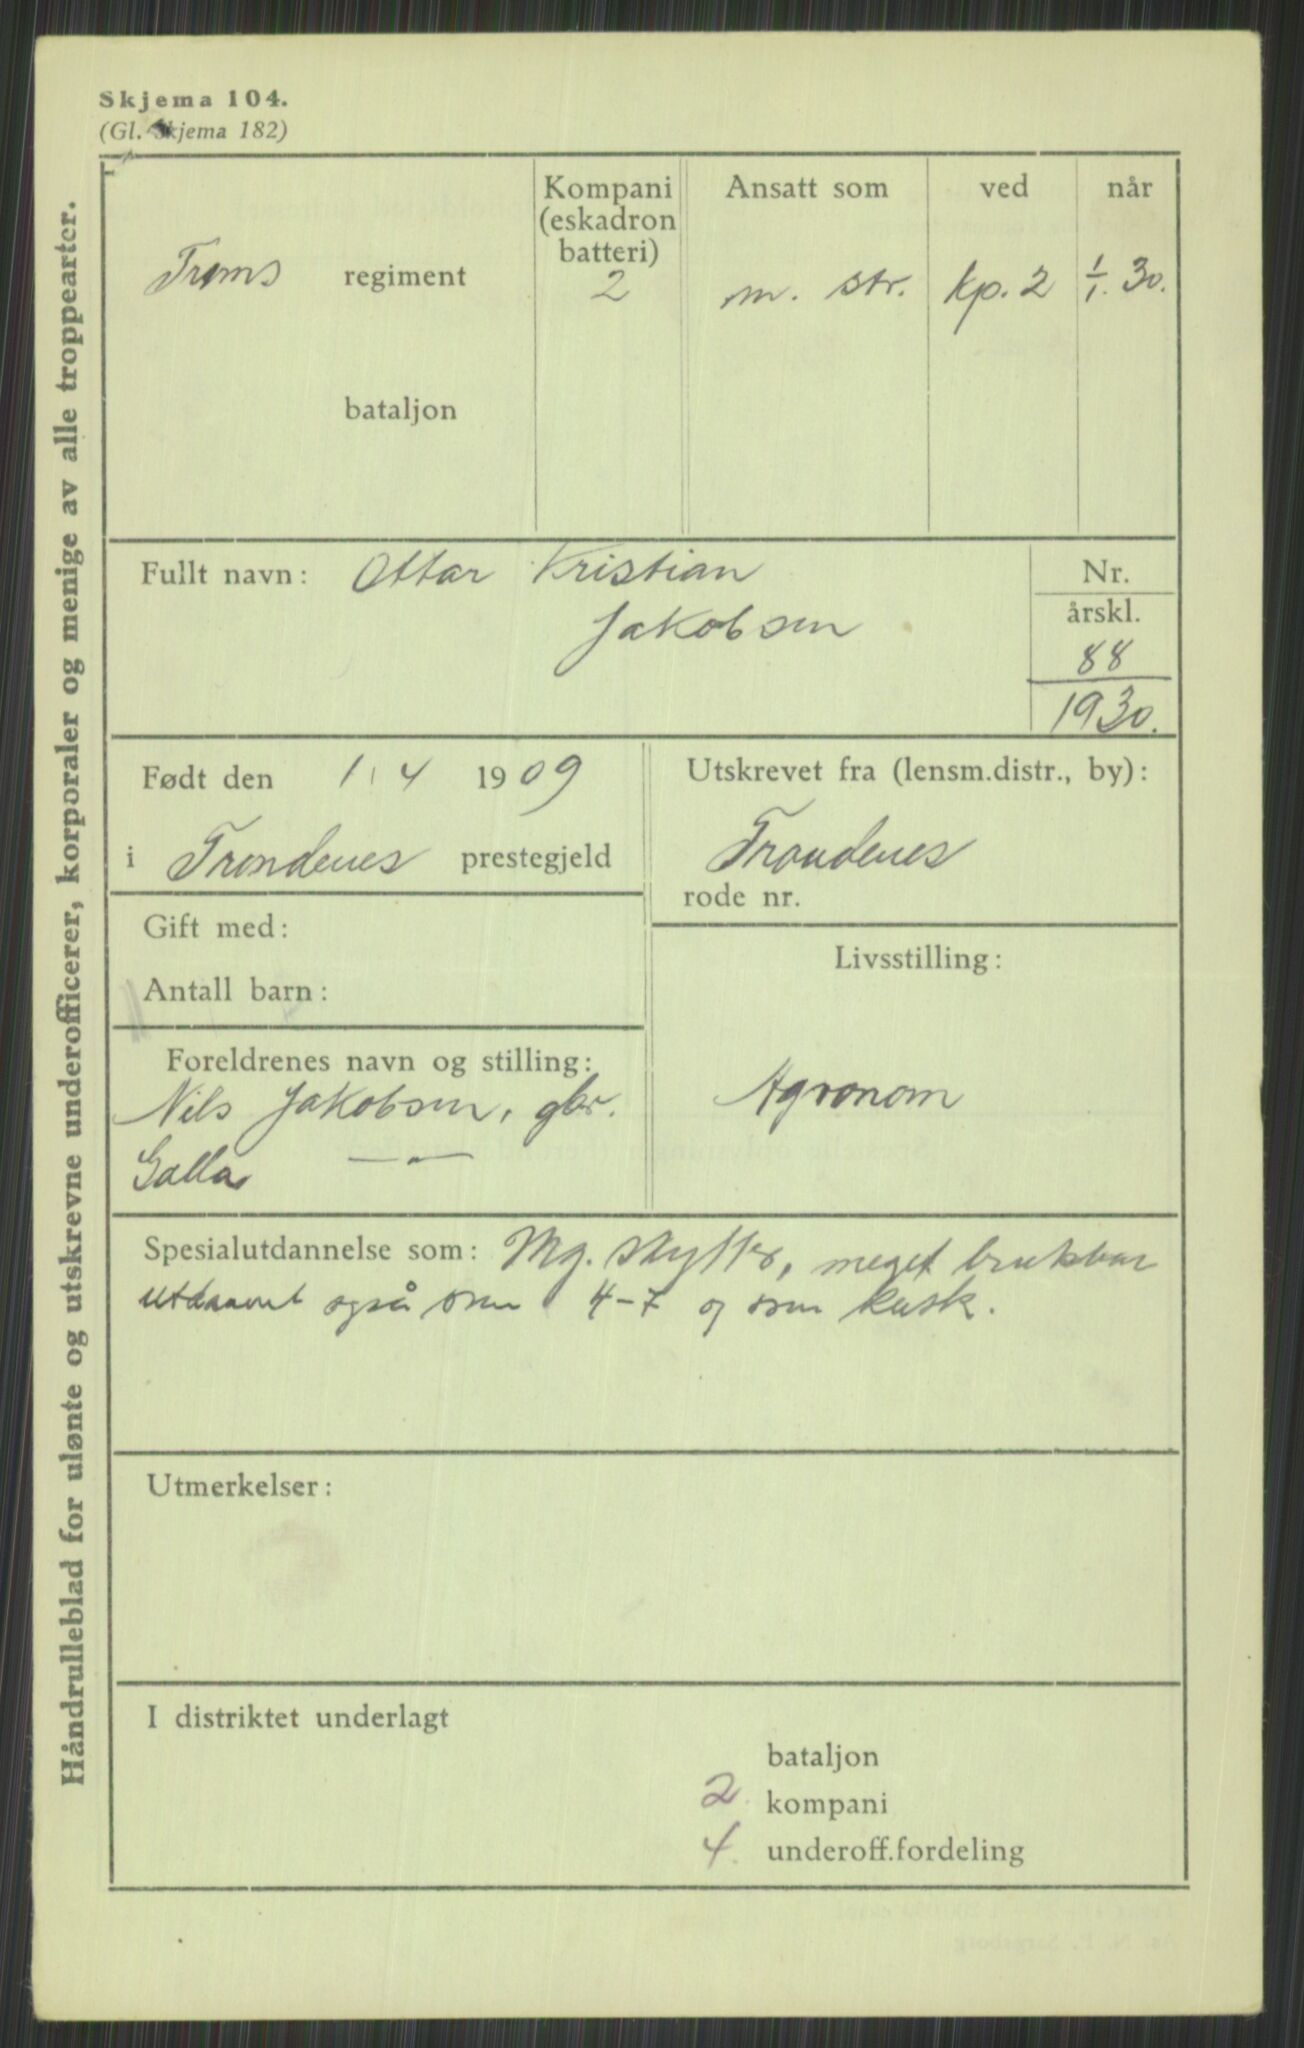 Skjema 104.
(Gl. Skjema 182)
Håndrulleblad for ulønte og utskrevne underofficerer, korporaler og menige av alle troppearter.
Kompani (eskadron batteri) Ansatt som ved når
Troms regiment 2 m. str. kp. 2 1/1. 30.
bataljon
Fullt navn: Ottar Kristian
Jakobsen
Nr.
årskl.
88
1930.
Født den 1 4 1909
i Trondenes prestegjeld
Utskrevet fra (lensm.distr., by):
Trondenes
rode nr.
Gift med:
Antall barn:
Livsstilling:
Agronom
Foreldrenes navn og stilling:
Nils Jakobsen, gbr.
— " —
Spesialutdannelse som: Mg. skytter, meget brukbar
utdannet også som 4-7 og som kusk.
Utmerkelser:
I distriktet underlagt
bataljon
2. kompani
4. underoff.fordeling